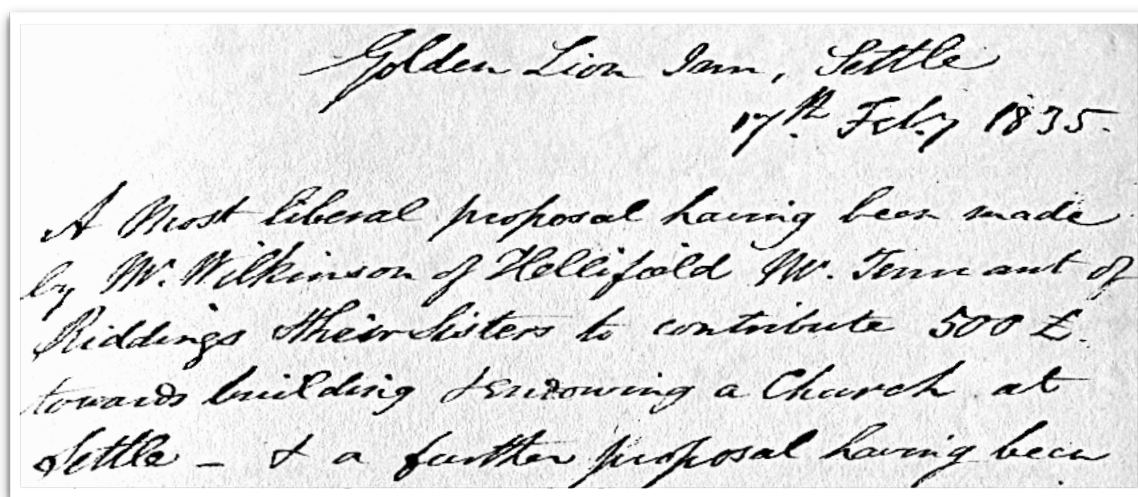 Golden Lion Inn, Settle
17th Feby 1835.
A Most liberal proposal having been made
by Mr. Wilkinson of Hellifield Mr. Tennant of
Riddings & their Sisters to contribute 500 £.
towards building & Endowing a Church at
Settle – & a further proposal having been